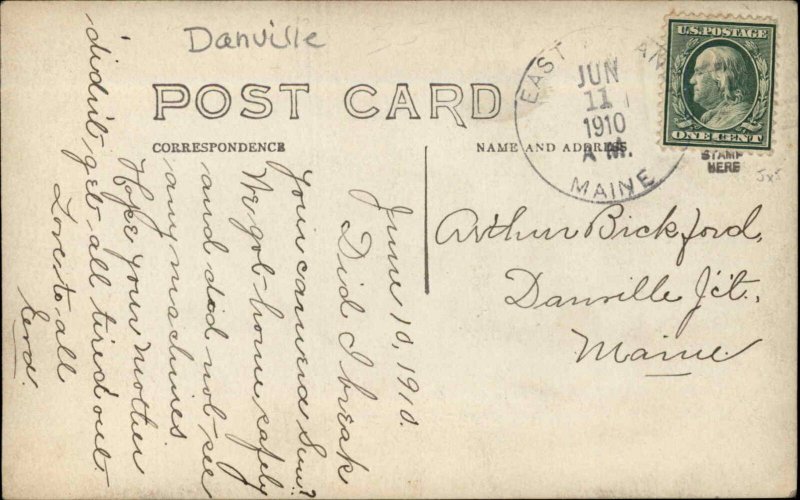 Danville
POST CARD
CORRESPONDENCE
NAME AND ADDRESS
EAST
JUN
11
1910
A M.
MAINE
U.S. POSTAGE
ONE CENT
STAMP
HERE
5x5
Arthur Bickford,
Danville Jct.,
Maine.
June 10, 1910.
Did I break
your camera Sun?
We got home safely
and did not see
any machines
Hope your mother
didn't get all tired out.
Love to all